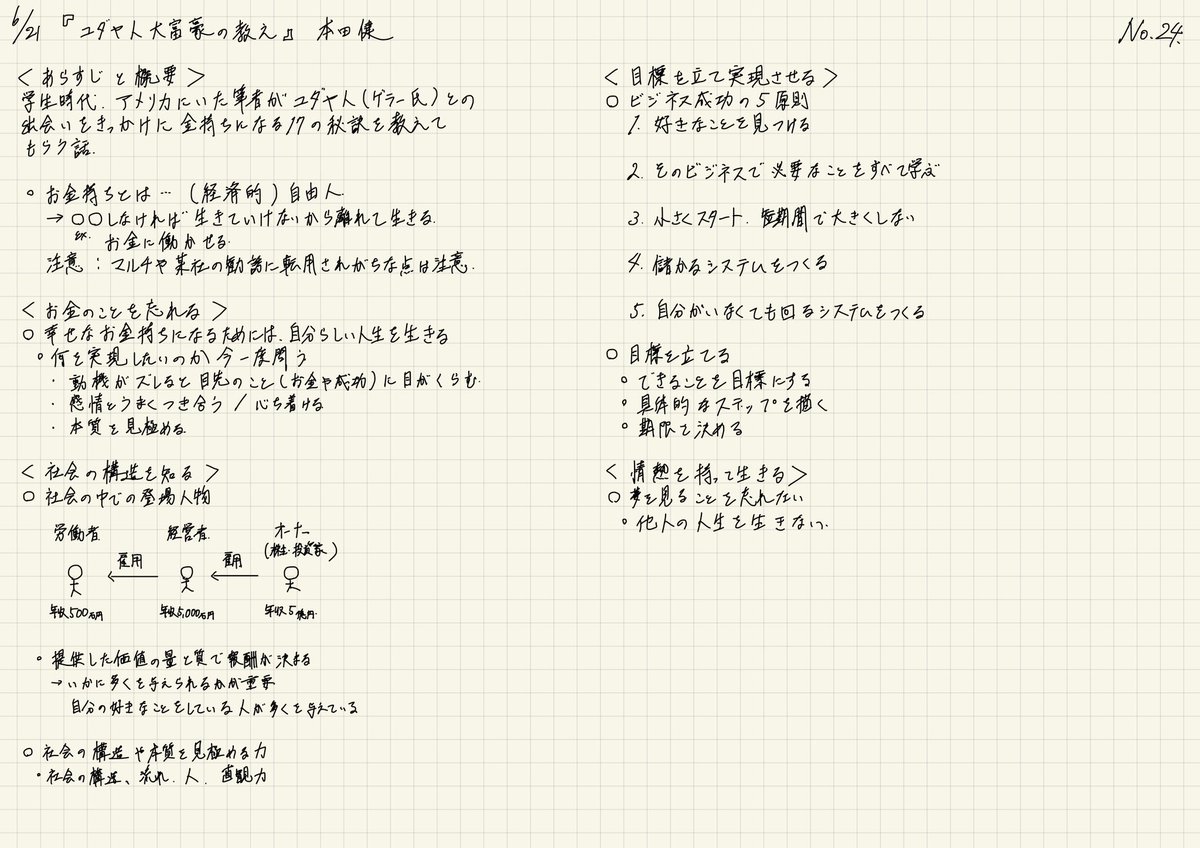 6/21 『ユダヤ人大富豪の教え』 本田健
No.24.
< あらすじと概要 >
学生時代、アメリカにいた筆者がユダヤ人(ゲラー氏)との
出会いをきっかけに金持ちになる17の秘訣を教えて
もらう話.
○ お金持ちとは… (経済的)自由人.
→ ○○しなければ生きていけないから離れて生きる.
ex. お金に働かせる.
注意 : マルチや某社の勧誘に転用されがちな点は注意.
< お金のことを忘れる >
○ 幸せなお金持ちになるためには、自分らしい人生を生きる
○ 何を実現したいのか今一度問う
・ 動機がズレると目先のこと(お金や成功)に目がくらむ.
・ 感情とうまくつき合う / 心ち着ける
・ 本質を見極める.
< 社会の構造を知る >
○ 社会の中での登場人物
労働者 経営者. オーナー
(株主・投資家)
雇用 雇用
年収500万円 年収5,000万円 年収5億円.
○ 提供した価値の量と質で報酬が決まる
→ いかに多くを与えられるかが重要
自分の好きなことをしている人が多くを与えている
○ 社会の構造や本質を見極める力
・社会の構造、流れ、人、直観力
< 目標を立て実現させる >
○ ビジネス成功の5原則
1. 好きなことを見つける
2. そのビジネスで必要なことをすべて学ぶ
3. 小さくスタート. 短期間で大きくしない
4. 儲かるシステムをつくる
5. 自分がいなくても回るシステムをつくる
○ 目標を立てる
○ できることを目標にする
○ 具体的なステップを描く
○ 期限を決める
< 情熱を持って生きる>
○ 夢を見ることを忘れない
○ 他人の人生を生きない.